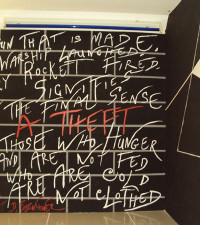 UN THAT IS MADE,
WARSHIP LAUNCHED,
ROCKETT FIRED
SIGNIFIES
THE FINAL SENSE
A THEFT
THOSE WHO HUNGER
AND ARE NOT FED
WHO ARE COLD
ARE NOT CLOTHED